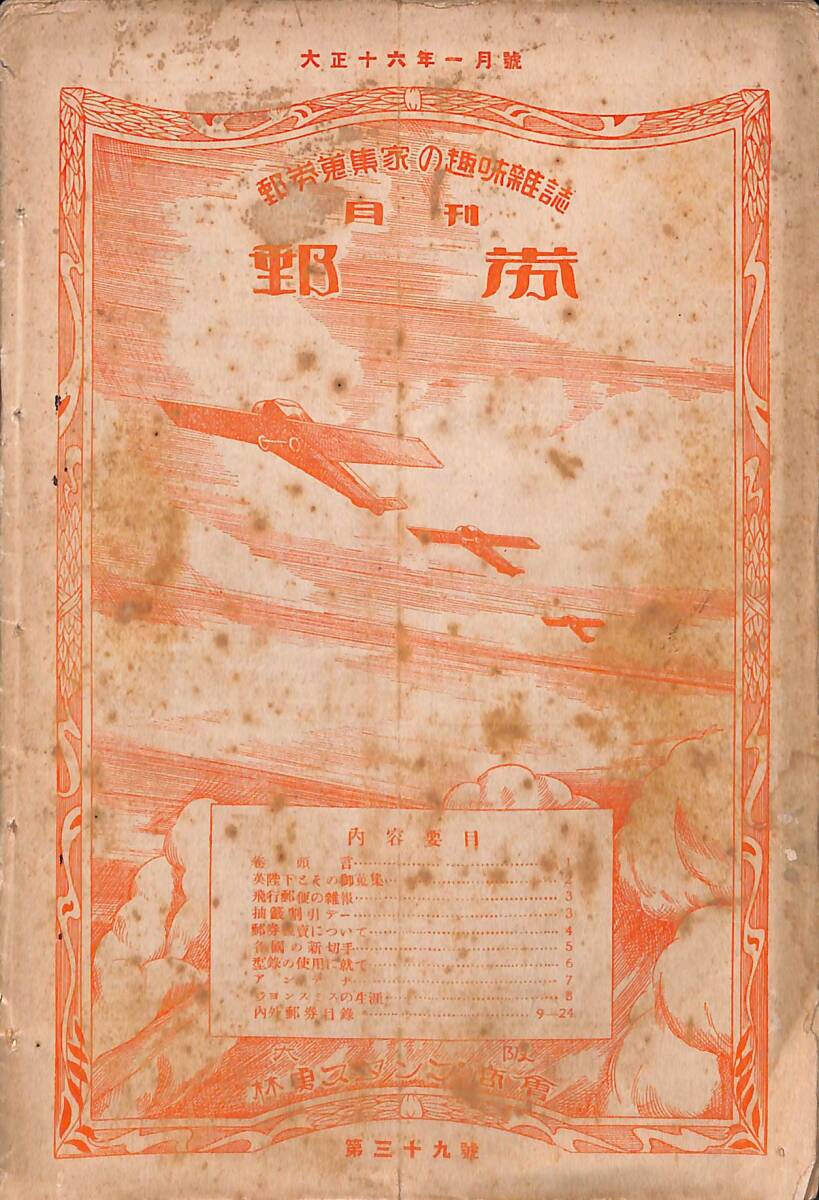 大正十六年一月號
郵券蒐集家の趣味雜誌
月刊
郵券
內容要目
卷頭言 1
英陛下とその御蒐集 2
飛行郵便の雜報 3
抽籤割引デー 3
郵券賣について 4
各國の新切手 5
型錄の使用に就て 6
アンテナ 7
ジヨンスミスの生涯 8
內外郵券目錄 9—24
大阪
林勇スタンプ商會
第三十九號